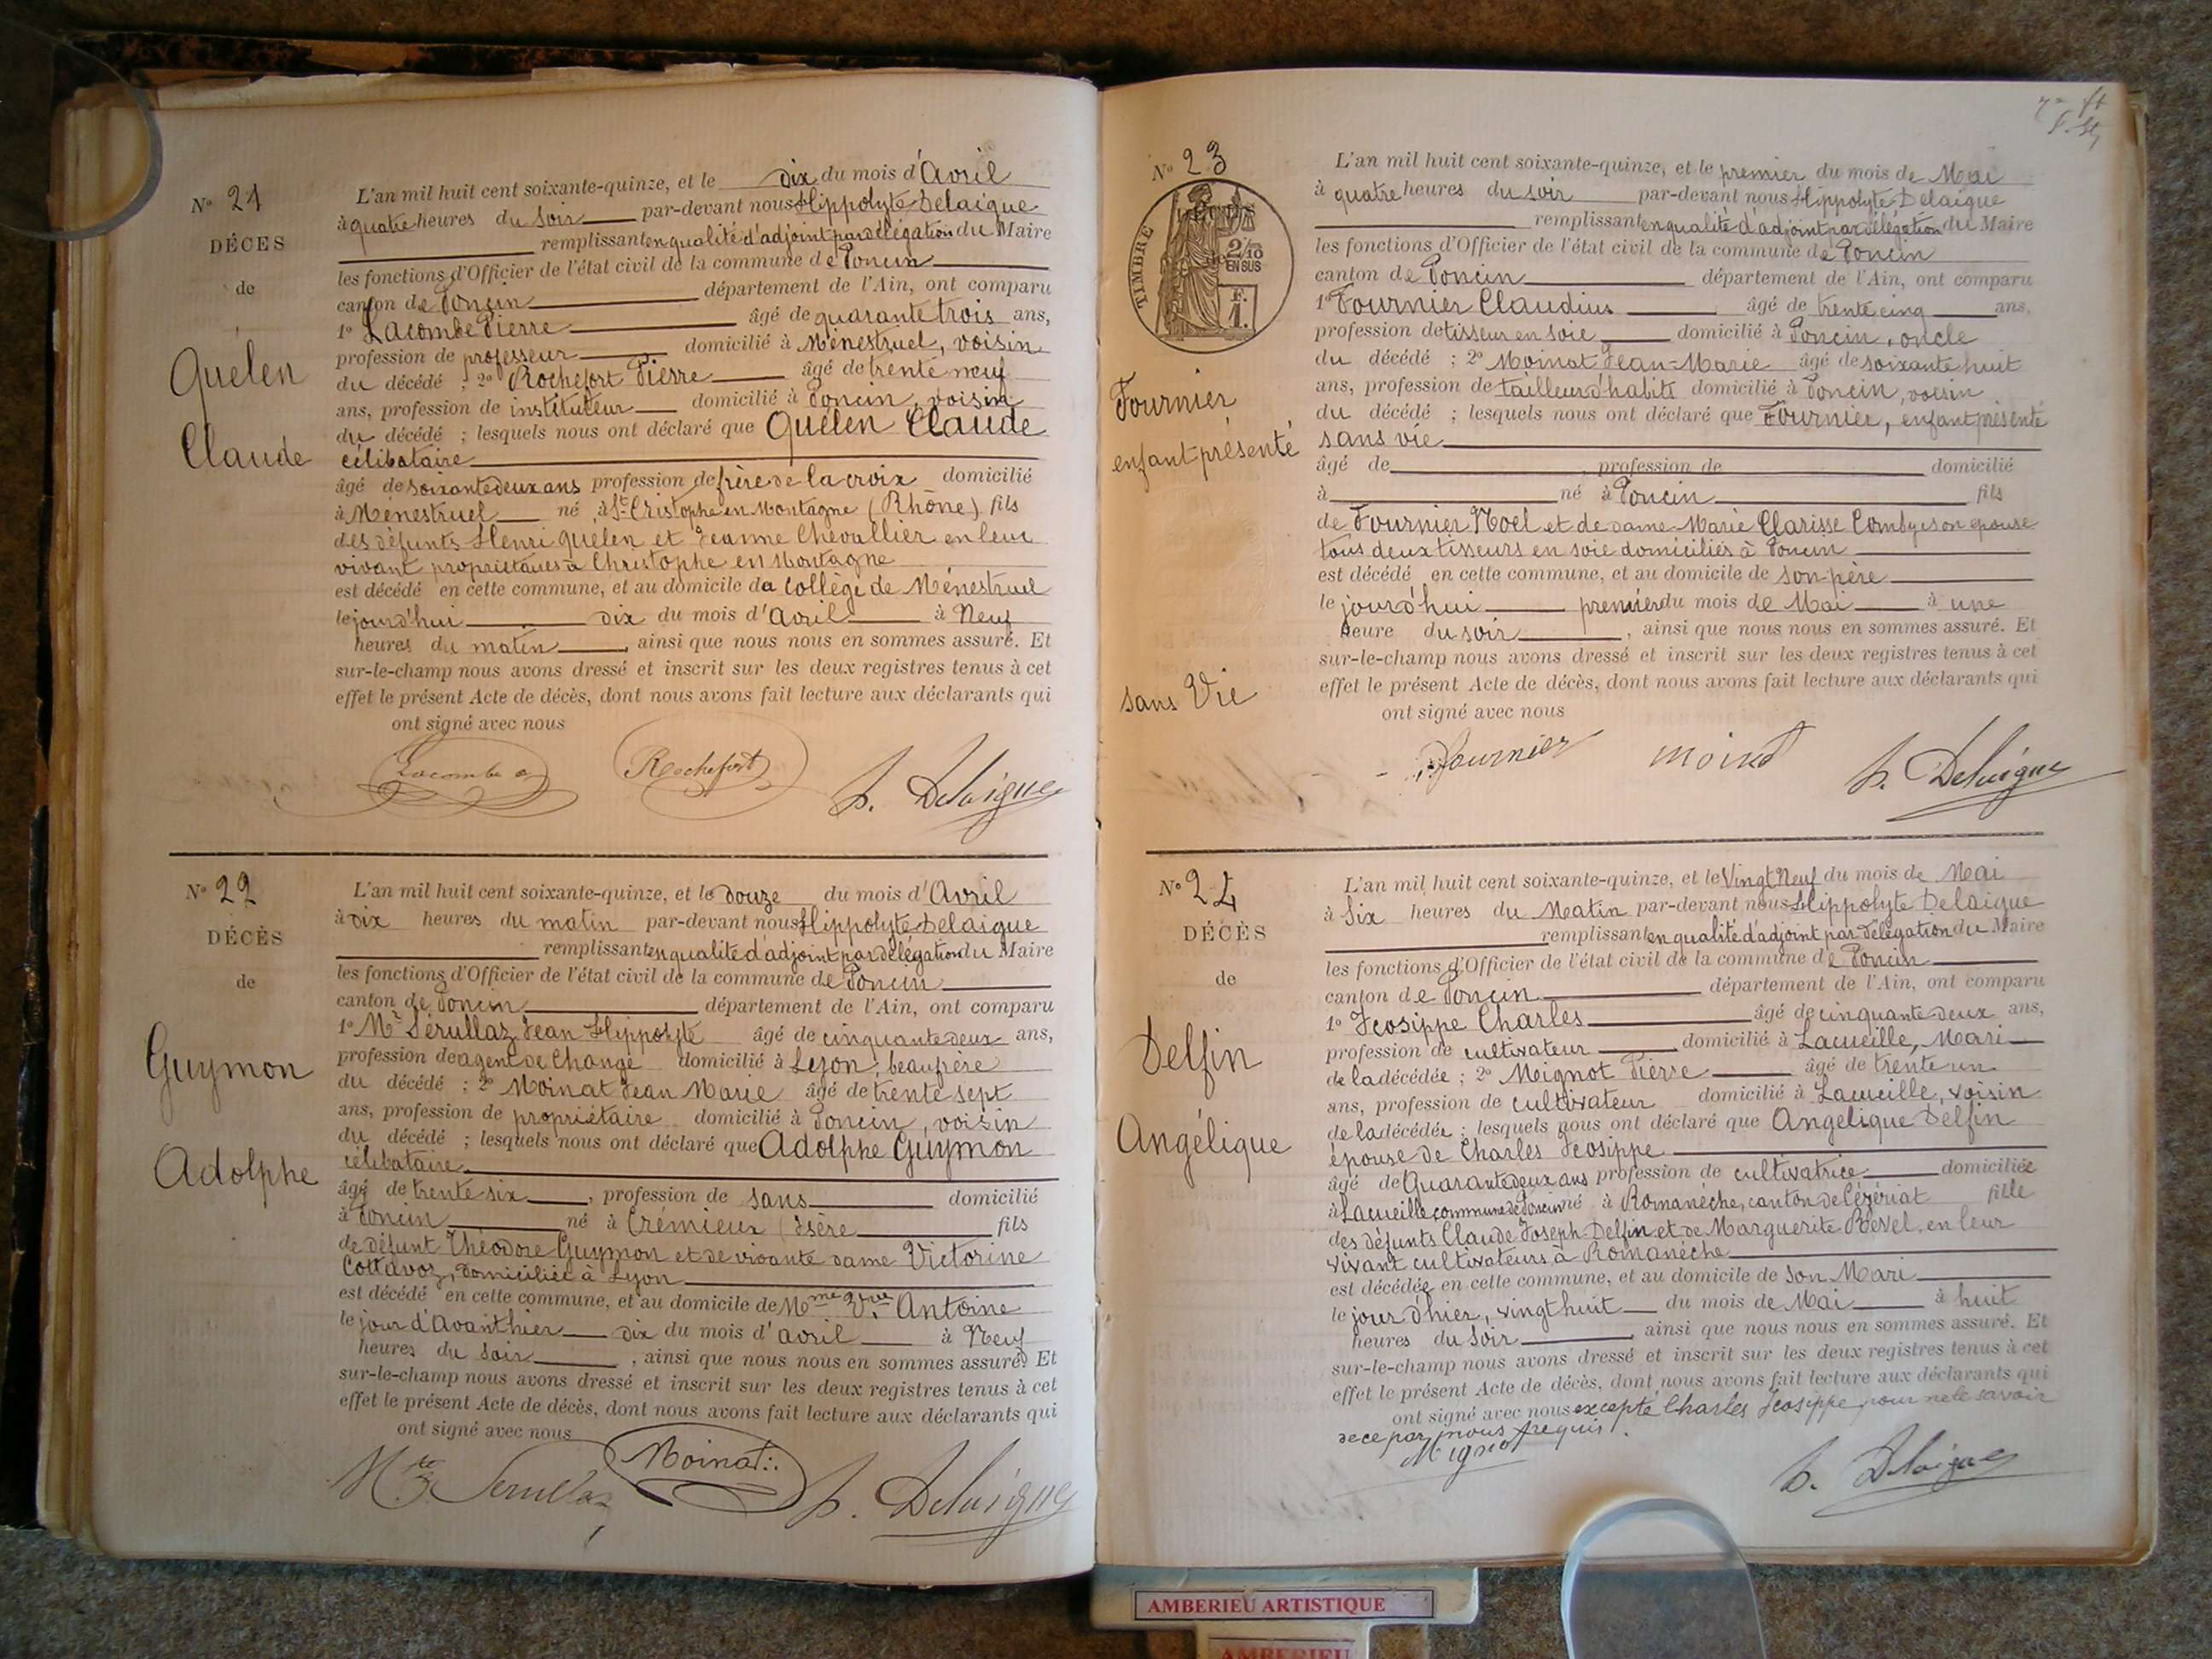 N° 21
DÉCES
de
Quélen
Claude
L'an mil huit cent soixante-quinze, et le dix du mois d'Avril
à quatre heures du Soir par-devant nous Hippolyte Delaigue
remplissant en qualité d'adjoint par délégation du Maire
les fonctions d'Officier de l'état civil de la commune de Poncin
canton de Poncin département de l'Ain, ont comparu
1° Lacombe Pierre âgé de quarante trois ans,
profession de professeur domicilié à Ménestruel, voisin
du décédé ; 2° Rochefort Pierre âgé de trente neuf
ans, profession de instituteur domicilié à Poncin, voisin
du décédé ; lesquels nous ont déclaré que Quélen Claude
célibataire
âgé de soixante deux ans profession de frère de la croix domicilié
à Ménestruel né à St Cristophe en Montagne (Rhône) fils
des défunts Henri Quélen et Jeanne Chevallier en leur
vivant propriétaires à Christophe en Montagne
est décédé en cette commune, et au domicile da collège de Ménestruel
le jourd'hui dix du mois d'Avril à Neuf
heures du matin, ainsi que nous nous en sommes assuré. Et
sur-le-champ nous avons dressé et inscrit sur les deux registres tenus à cet
effet le présent Acte de décès, dont nous avons fait lecture aux déclarants qui
ont signé avec nous
Lacombe Rochefort h. Delaigue
N° 22
DÉCÈS
de
Guymon
Adolphe
L'an mil huit cent soixante-quinze, et le douze du mois d'Avril
à dix heures du matin par-devant nous Hippolyte Delaigue
remplissant en qualité d'adjoint par délégation du Maire
les fonctions d'Officier de l'état civil de la commune de Poncin
canton de Poncin département de l'Ain, ont comparu
1° Mr Sérullaz Jean Hippolyte âgé de cinquante deux ans,
profession de agent de change domicilié à Lyon, beaufrère
du décédé ; 2° Moinat Jean Marie âgé de trente sept
ans, profession de propriétaire domicilié à Poncin, voisin
du décédé ; lesquels nous ont déclaré que Adolphe Guymon
célibataire
âgé de trente six, profession de sans domicilié
à Poncin né à Crémieux (Isère fils
de défunt Théodore Guymon et de vivante dame Victorine
Cottavoz, domiciliée à Lyon
est décédé en cette commune, et au domicile de Mme Vve Antoine
le jour d'avanthier dix du mois d'avril à Neuf
heures du Soir, ainsi que nous nous en sommes assuré. Et
sur-le-champ nous avons dressé et inscrit sur les deux registres tenus à cet
effet le présent Acte de décès, dont nous avons fait lecture aux déclarants qui
ont signé avec nous
Serullaz Moinat h. Delaigue
N° 23
TIMBRE
2/10
EN SUS
F.
1.
Fournier
enfant présenté
sans Vie
L'an mil huit cent soixante-quinze, et le premier du mois de Mai
à quatre heures du soir par-devant nous Hippolyte Delaigue
remplissant en qualité d'adjoint par délégation du Maire
les fonctions d'Officier de l'état civil de la commune de Poncin
canton de Poncin département de l'Ain, ont comparu
1° Fournier Claudius âgé de trente cinq ans,
profession de tisseur en soie domicilié à Poncin, oncle
du décédé ; 2° Moinat Jean-Marie âgé de soixante huit
ans, profession de tailleur d'habits domicilié à Poncin, voisin
du décédé ; lesquels nous ont déclaré que Fournier, enfant présenté
sans vie
âgé de profession de domicilié
à né à Poncin fils
de Fournier Noel et de dame Marie Clarisse Combyc son épouse
tous deux tisseurs en soie domiciliés à Poncin
est décédé en cette commune, et au domicile de son père
le jourd'hui premier du mois de Mai à une
heure du soir, ainsi que nous nous en sommes assuré. Et
sur-le-champ nous avons dressé et inscrit sur les deux registres tenus à cet
effet le présent Acte de décès, dont nous avons fait lecture aux déclarants qui
ont signé avec nous
Fournier moinat h. Delaigue
N° 24
DÉCÈS
de
Delfin
Angélique
L'an mil huit cent soixante-quinze, et le Vingt Neuf du mois de Mai
à Six heures du Matin par-devant nous Hippolyte Delaigue
remplissant en qualité d'adjoint par délégation du Maire
les fonctions d'Officier de l'état civil de la commune de Poncin
canton de Poncin département de l'Ain, ont comparu
1° Jcosippe Charles âgé de cinquante deux ans,
profession de cultivateur domicilié à Lacueille, Mari
de la décédée ; 2° Meignot Pierre âgé de trente un
ans, profession de cultivateur domicilié à Lacueille, voisin
de la décédée ; lesquels nous ont déclaré que Angélique Delfin
épouse de Charles Jcosippe
âgé de Quarante deux ans profession de cultivatrice domiciliée
à Lacueille commune de Poncin né à Romanèche, canton de Cézériat fille
des défunts Claude Joseph Delfin et de Marguerite Revel, en leur
vivant cultivateurs à Romanèche
est décédée en cette commune, et au domicile de Son Mari
le jour d'hier, vingt huit du mois de Mai à huit
heures du Soir ainsi que nous nous en sommes assuré. Et
sur-le-champ nous avons dressé et inscrit sur les deux registres tenus à cet
effet le présent Acte de décès, dont nous avons fait lecture aux déclarants qui
ont signé avec nous excepté Charles Jcosippe pour ne le savoir
de ce par nous requis.
Mignot h. Delaigue
AMBERIEU ARTISTIQUE
AMBERIEU